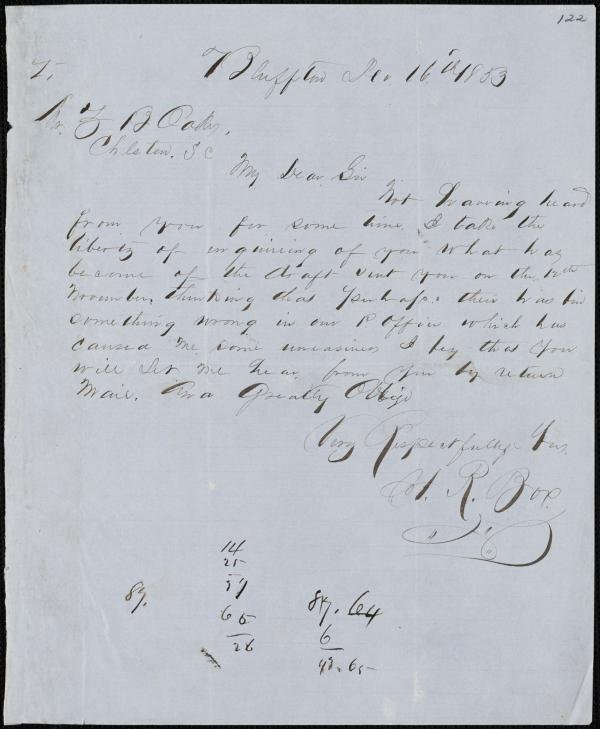 122
Bluffton Dec. 16th 1853
Mr. Z B Oakes,
Chlston. S C
My Dear Sir
Not hearing heard
from you for some time I take the
liberty of inquireing of you what has
become of the draft sent you on the
November, thinking that perhaps their has bin
something wrong in our P Office which has
caused me some uneasiness I beg that you
will let me hear from you by return
Mail. And Greatly Oblige
Very Respectfully Yours
R. Box
14
25
89.
65
26
87. 64
6
93.65